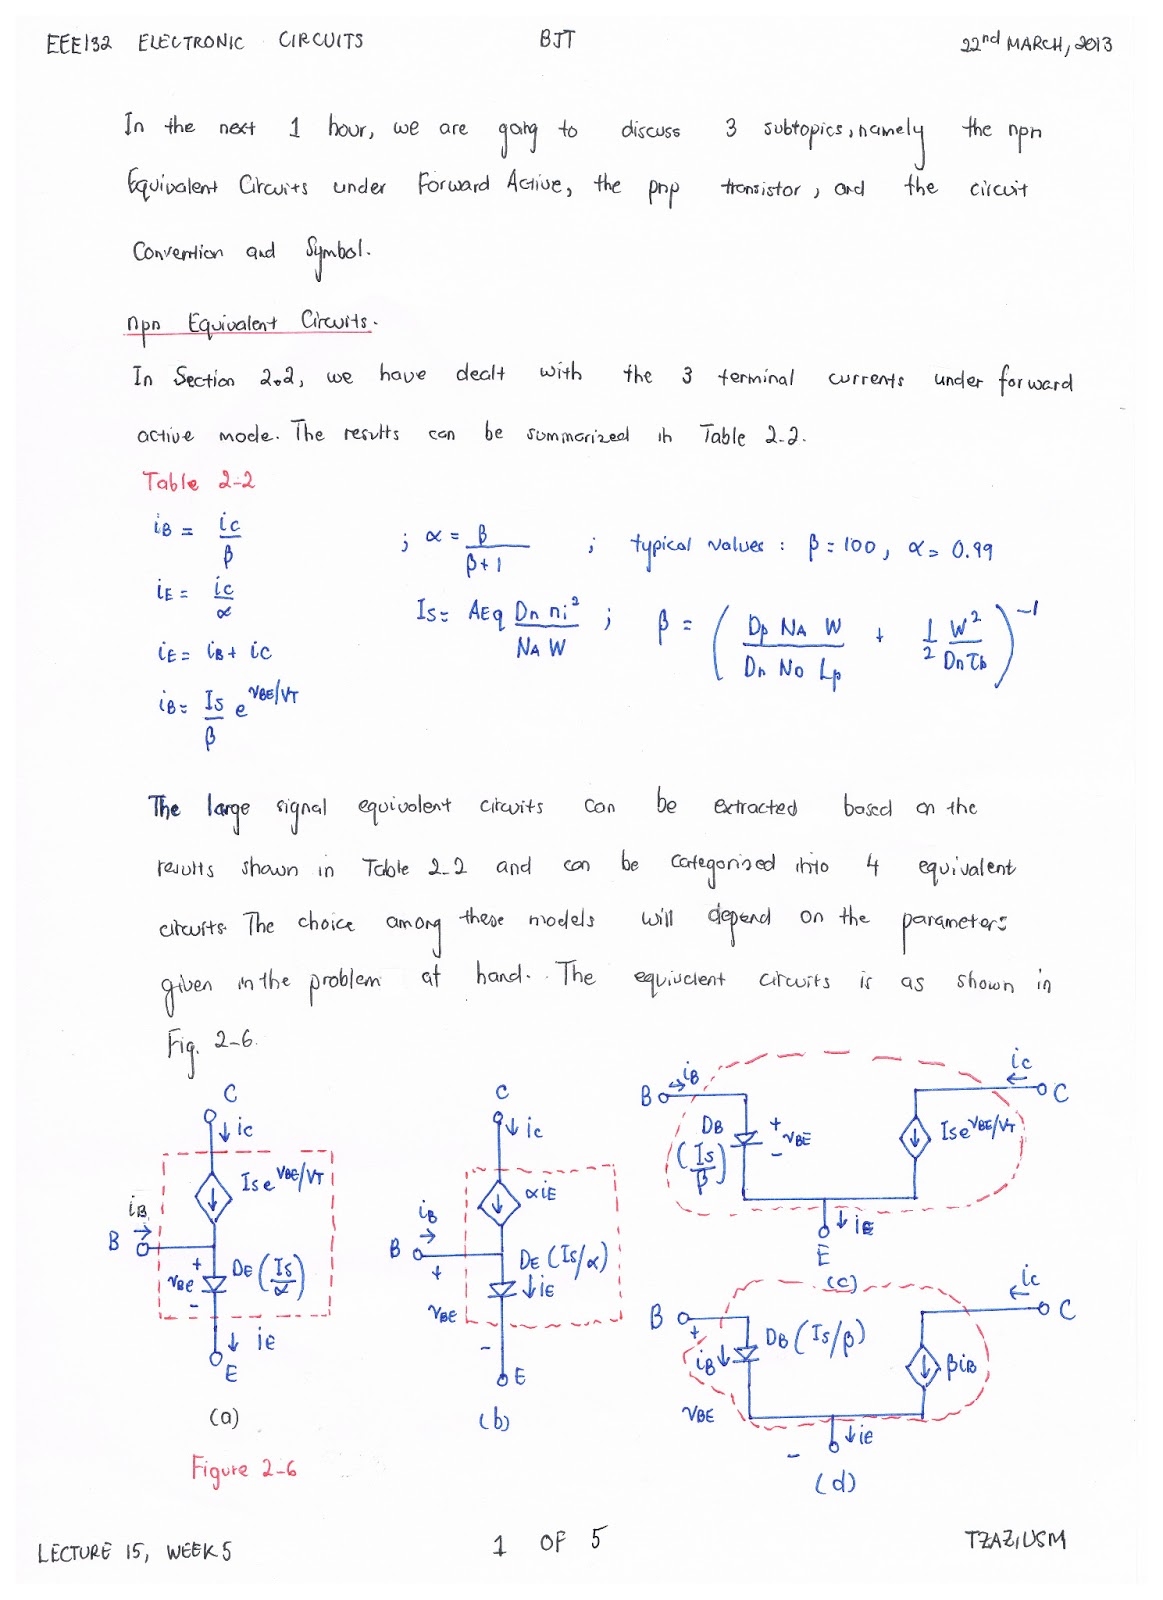 EEE132 ELECTRONIC CIRCUITS BJT 22nd MARCH, 2013
In the next 1 hour, we are going to discuss 3 subtopics, namely the npn
Equivalent Circuits under Forward Active, the pnp transistor, and the circuit
Convention and Symbol.
npn Equivalent Circuits.
In Section 2.2, we have dealt with the 3 terminal currents under forward
active mode. The results can be summarized in Table 2-2.
Table 2-2
iB = iC/β ; α = β/(β+1) ; typical values : β = 100, α = 0.99
iE = iC/α
IS = AEq Dn ni²/(NA W) ; β = (Dp NA W/(Dn ND Lp) + 1/2 W²/(Dn τb))⁻¹
iE = iB + iC
iB = IS/β e^(vBE/VT)
The large signal equivalent circuits can be extracted based on the
results shown in Table 2-2 and can be categorized into 4 equivalent
circuits. The choice among these models will depend on the parameters
given in the problem at hand. The equivalent circuits is as shown in
Fig. 2-6.
C
iC
IS e^(vBE/VT)
iB
B
+
vBE
-
DE (IS/α)
iE
E
(a)
C
iC
αiE
iB
B
+
vBE
-
DE (IS/α)
iE
E
(b)
B
iB
DB
(IS/β)
+
vBE
-
IS e^(vBE/VT)
iC
C
iE
E
(c)
B
+
iB
DB (IS/β)
vBE
-
βiB
iC
C
iE
(d)
Figure 2-6
LECTURE 15, WEEK 5 1 OF 5 TZAZ, USM